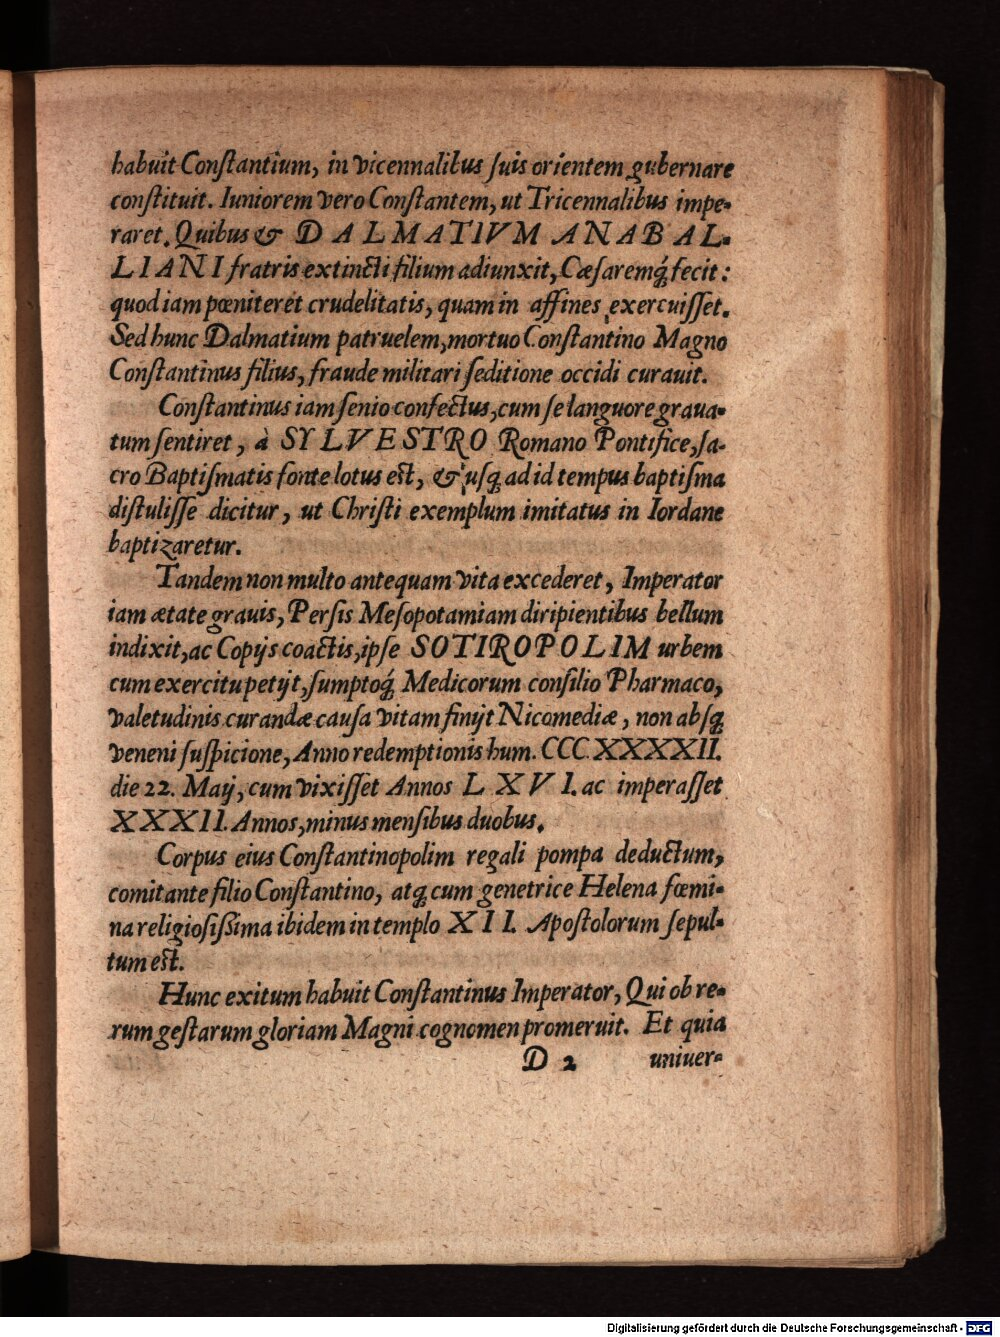 habuit Conſtantium, in vicennalibus ſuis orientem gubernare
conſtituit. Iuniorem vero Conſtantem, ut Tricennalibus impe-
raret. Quibus & DALMATIVM ANABAL-
LIANI fratris extincti filium adiunxit, Cæſaremq́; fecit:
quod iam pœniteret crudelitatis, quam in affines exercuiſſet.
Sed hunc Dalmatium patruelem, mortuo Conſtantino Magno
Conſtantinus filius, fraude militari ſeditione occidi curauit.
Conſtantinus iam ſenio confectus, cum ſe languore graua-
tum ſentiret, à SYLVESTRO Romano Pontifice, ſa-
cro Baptiſmatis fonte lotus eſt, & uſq; ad id tempus baptiſma
diſtuliſſe dicitur, ut Chriſti exemplum imitatus in Iordane
baptizaretur.
Tandem non multo antequam vita excederet, Imperator
iam ætate grauis, Perſis Meſopotamiam diripientibus bellum
indixit, ac Copijs coactis, ipſe SOTIROPOLIM urbem
cum exercitu petijt, ſumptoq́; Medicorum conſilio Pharmaco,
valetudinis curandæ cauſa vitam finijt Nicomediæ, non abſq;
veneni ſuſpicione, Anno redemptionis hum. CCC XXXXII.
die 22. Maij, cum vixiſſet Annos LXVI. ac imperaſſet
XXXII. Annos, minus menſibus duobus.
Corpus eius Conſtantinopolim regali pompa deductum,
comitante filio Conſtantino, atq; cum genetrice Helena fœmi-
na religioſiſſima ibidem in templo XII. Apoſtolorum ſepul-
tum eſt.
Hunc exitum habuit Conſtantinus Imperator, Qui ob re-
rum geſtarum gloriam Magni cognomen promeruit. Et quia
D 2 uniuer-
Digitalisierung gefördert durch die Deutsche Forschungsgemeinschaft - DFG